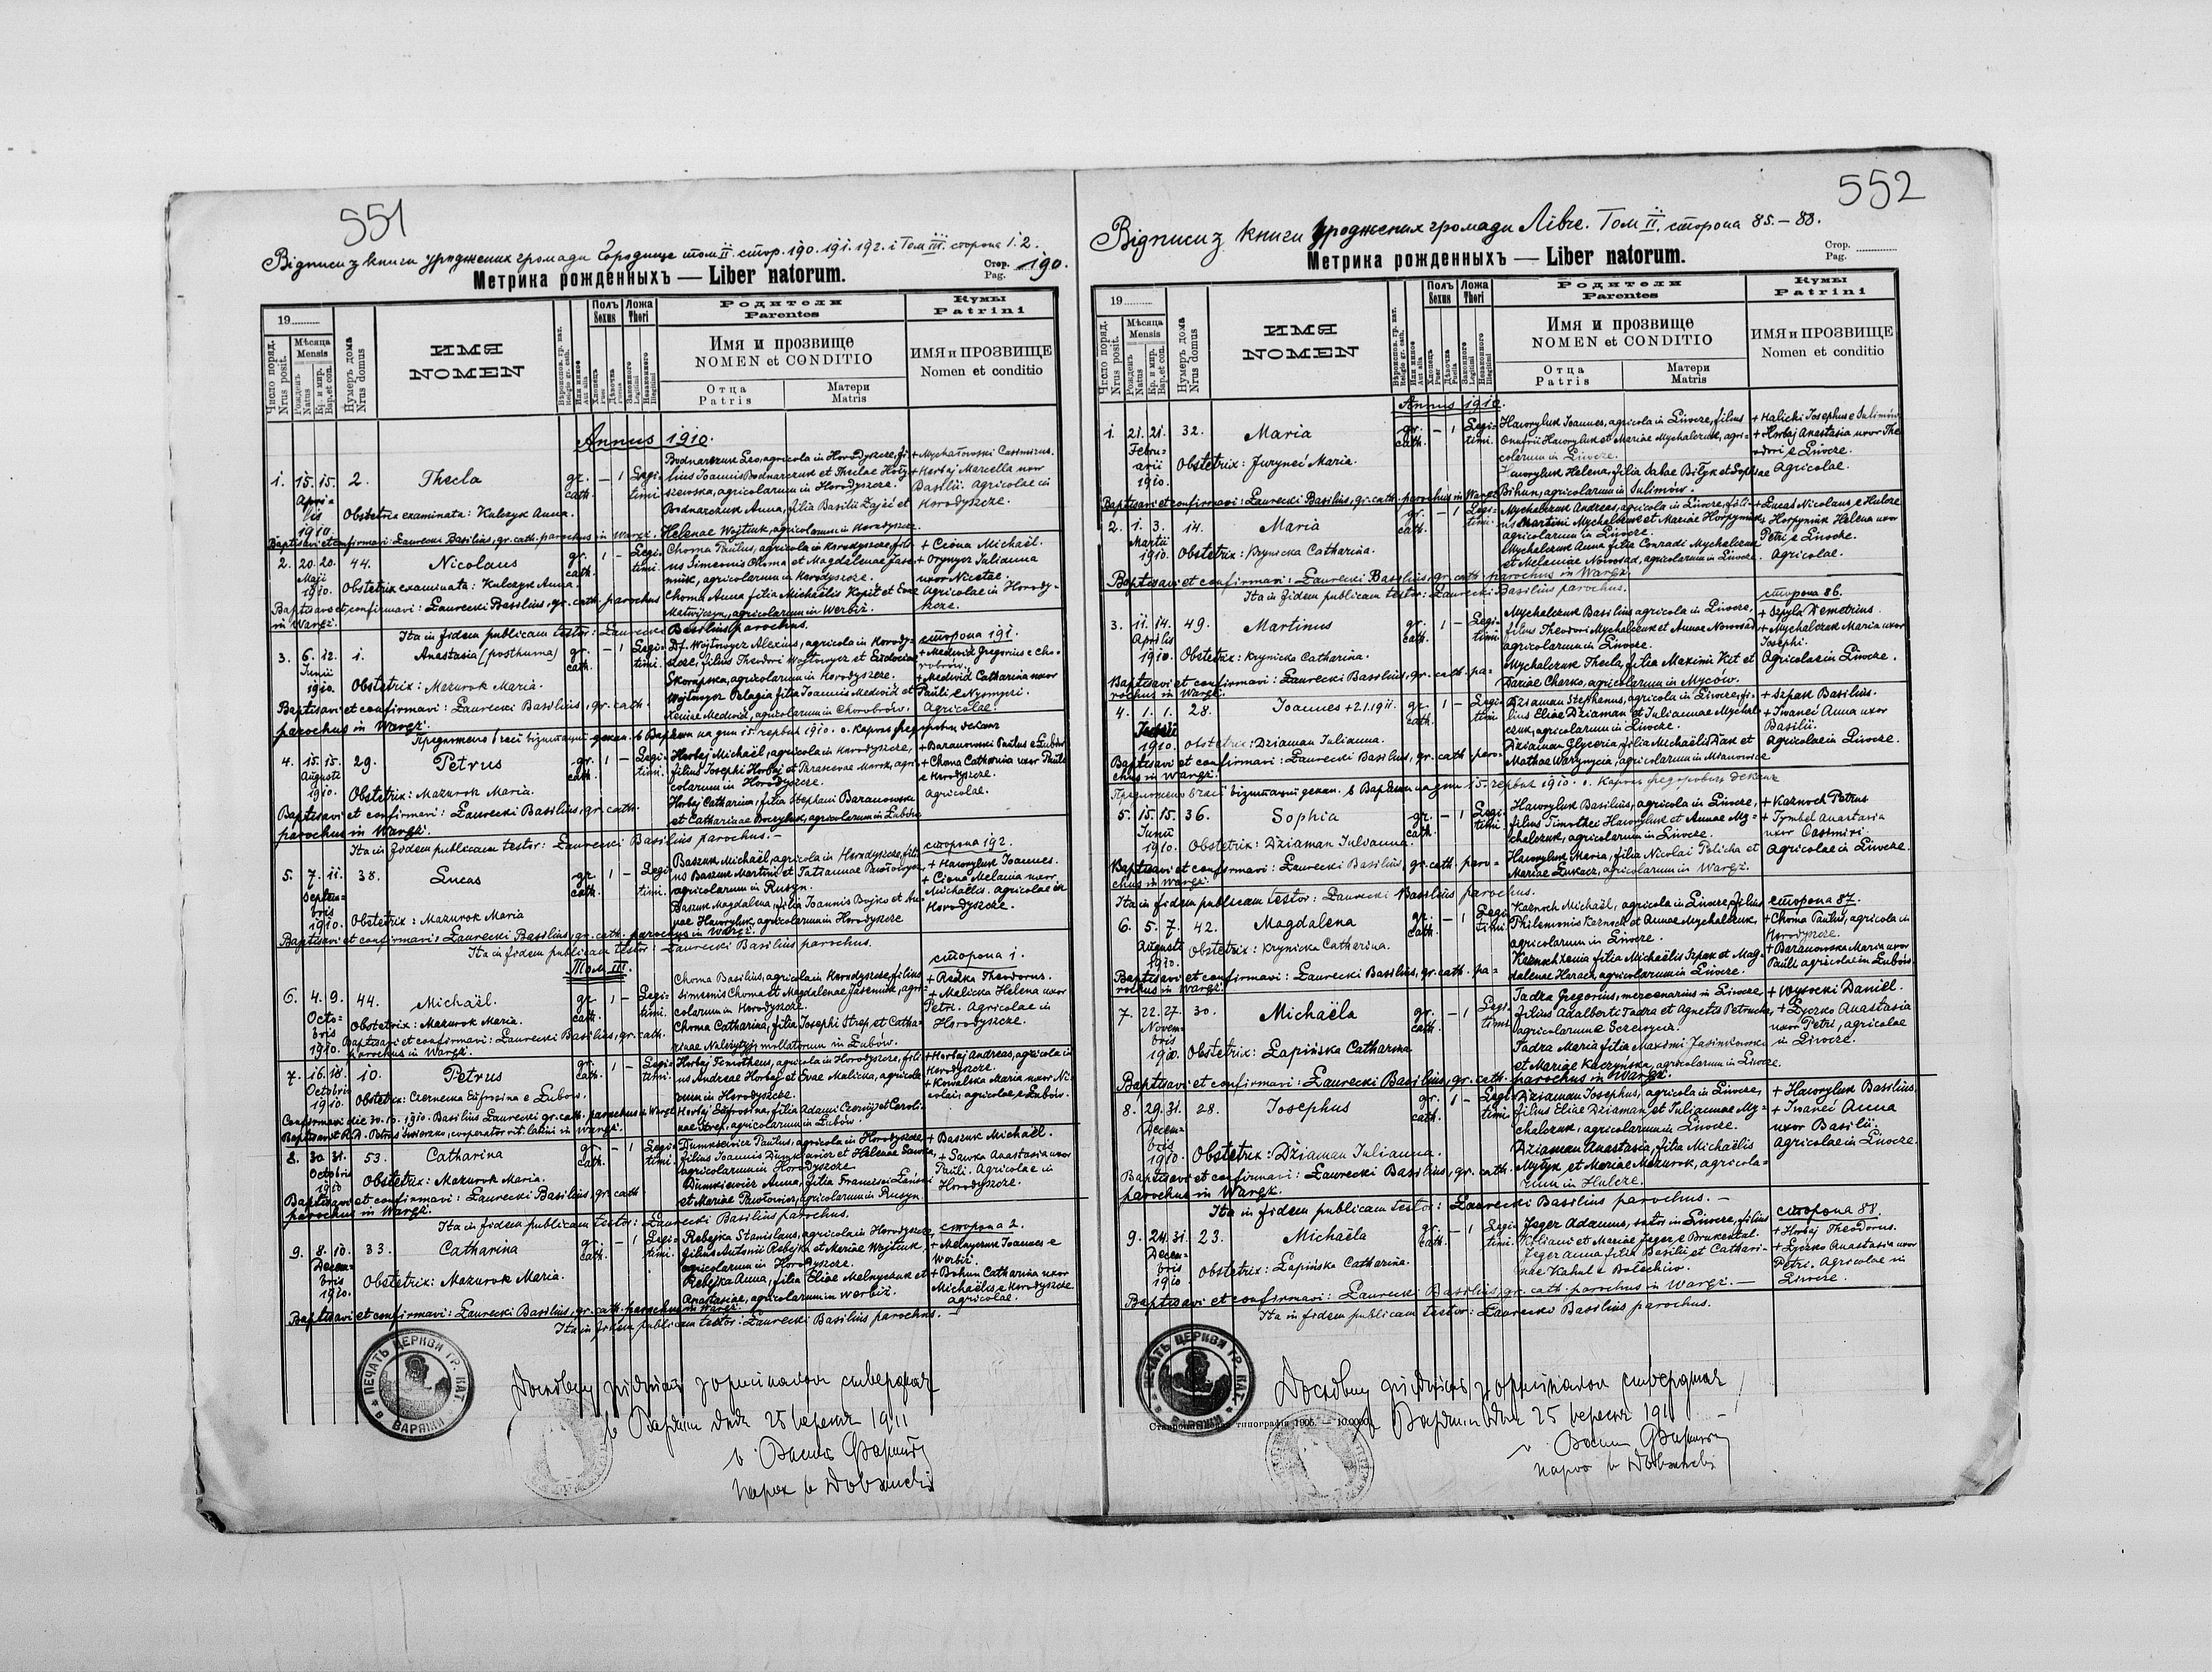 551
Відписи з книги уроджених громади Городище том II. стор. 190. 191. 192. і Том III. сторона 1. 2.
Метрика рожденныхъ — Liber natorum.
Стор. Pag. 190.
19
Число поряд. Nrus posit.
Мѣсяца Mensis
Рожденъ Natus
Кр. и мир. Bap. et con.
Нумеръ дома Nrus domus
ИМЯ
NOMEN
Полъ Sexus
Ложа Thori
Родители
Parentes
Имя и прозвище
NOMEN et CONDITIO
Отца Patris
Матери Matris
Кумы
Patrini
ИМЯ и ПРОЗВИЩЕ
Nomen et conditio
Annus 1910.
1. 15. 15. Aprilis 1910. 2. Thecla gr. cath. — 1 Legitimi
Bodnarczuk Leo, agricola in Horodyszcze, filius Joannis Bodnarczuk et Theclae
agricolarum in Horodyszcze.
Bodnarczuk Anna, filia Basilii Zajić et
Helenae Wojtiuk, agricolarum in Horodyszcze.
+ Mychałowski Casimirus.
+ Horbaj Marcella uxor
Basilii. Agricolae in
Horodyszcze.
Obstetrix examinata: Kulczyk Anna.
Baptisavi et confirmavi: Laurecki Basilius, gr. cath. parochus in Waręż.
2. 20. 20. Maji 1910. 44. Nicolaus gr. cath. 1 — Legitimi.
Choma Paulus, agricola in Horodyszcze, filius Simeonis Choma et Magdalenae
agricolarum in Horodyszcze.
Choma Anna filia Michaëlis Kopit et Evae
agricolarum in Werbiż.
+ Ciona Michaël.
+ Orynycz Julianna
uxor Nicetae.
Agricolae in Horodyszcze.
Obstetrix examinata: Kulczyk Anna.
Baptisavi et confirmavi: Laurecki Basilius, gr. cath. parochus
in Waręż.
Ita in fidem publicam testor: Laurecki Basilius parochus.
сторона 191.
3. 6. 12. Junii 1910. 1. Anastasia (posthuma) gr. cath. — 1 Legitimi.
Df. Wojtowycz Alexius, agricola in Horodyszcze, filius Theodori Wojtowycz et Eudociae
Skorupska, agricolarum in Horodyszcze.
Wojtowycz Pelagia filia Joannis Medwid et
Xeniae Medwid, agricolarum in Chorobrów.
+ Medwid Gregorius e Chorobrów.
+ Medwid Catharina uxor
Pauli
Agricolae.
Obstetrix: Mazurok Maria.
Baptisavi et confirmavi: Laurecki Basilius, gr. cath.
parochus in Waręż.
4. 15. 15. Augusti 1910. 29. Petrus gr. cath. 1 — Legitimi.
Horbaj Michaël, agricola in Horodyszcze,
filius Josephi Horbaj et Parascevae Mroz, agricolarum in Horodyszcze.
Horbaj Catharina, filia Stephani Baranowski
agricolarum in Łubów.
+ Baranowski Paulus e Łubów
+ Choma Catharina uxor Pauli
e Horodyszcze.
Agricolae.
Obstetrix: Mazurok Maria.
Baptisavi et confirmavi: Laurecki Basilius, gr. cath.
parochus in Waręż.
Ita in fidem publicam testor: Laurecki Basilius parochus.—
сторона 192.
5. 7. 11. Septembris 1910. 38. Lucas gr. cath. 1 — Legitimi.
Baszuk Michaël, agricola in Horodyszcze, filius Baszuk Martini et Tatiannae
agricolarum in Rusyn.
Baszuk Magdalena, filia Joannis Bojko et Annae Hawryluk, agricolarum in Horodyszcze
+ Hawryluk Joannes.
+ Ciona Melania uxor
Michaëlis. Agricolae in
Horodyszcze.
Obstetrix: Mazurok Maria
Baptisavi et confirmavi: Laurecki Basilius, gr. cath. parochus in Waręż.
Ita in fidem publicam testor: Laurecki Basilius parochus.
Том III.
сторона 1.
6. 4. 9. Octobris 1910. 44. Michaël. gr. cath. 1 — Legitimi.
Choma Basilius, agricola in Horodyszcze, filius
Simeonis Choma et Magdalenae agricolarum in Horodyszcze.
Choma Catharina, filia Josephi Strep et Catharinae
in Łubów.
+ Redka Theodorus.
+ Malicka Helena uxor
Petri. Agricolae in
Horodyszcze.
Obstetrix: Mazurok Maria.
Baptisavi et confirmavi: Laurecki Basilius, gr. cath.
parochus in Waręż.
7. 16. 18. Octobris 1910. 10. Petrus gr. cath. 1 — Legitimi.
Horbaj Timotheus, agricola in Horodyszcze, filius Andreae Horbaj et Evae Malicka, agricolarum in Horodyszcze.
Horbaj Eufrosina, filia Adami Czernij et Carolinae Strep, agricolarum in Łubów.
+ Horbaj Andreas, agricola in
Horodyszcze.
+ Kowalska Maria uxor Nicolai, agricolae e Łubów.
Obstetrix: Czerneska Eufrosina e Łubów.
Confirmavi die 30. 10. 1910. Basilius Laurecki gr. cath. parochus in Waręż
Baptisavit R. D. Petrus cooperator rit. latini in Waręż.
8. 30. 31. Octobris 1910. 53. Catharina gr. cath. — 1 Legitimi.
Dumkiewicz Paulus, agricola in Horodyszcze,
filius Joannis Dumkiewicz et Helenae Sawka,
agricolarum in Horodyszcze
Dumkiewicz Anna, filia Francisci
et Mariae Pawłowicz, agricolarum in Rusyn.
+ Baszuk Michaël.
+ Sawka Anastasia uxor
Pauli. Agricolae in
Horodyszcze.
Obstetrix: Mazurok Maria.
Baptisavi et confirmavi: Laurecki Basilius, gr. cath.
parochus in Waręż.
Ita in fidem publicam testor: Laurecki Basilius parochus.
сторона 2.
9. 8. 10. Decembris 1910. 33. Catharina gr. cath. — 1 Legitimi.
Rebejka Stanislaus, agricola in Horodyszcze,
filius Antonii Rebejka et Mariae Wojtiuk,
agricolarum in Horodyszcze.
Rebejka Anna, filia Eliae Melnyczuk et
Anastasiae, agricolarum in Werbiż.
+ Melnyczuk Joannes e
Werbiż.
+ Bohun Catharina uxor
Michaëlis e Horodyszcze
agricolae.
Obstetrix: Mazurok Maria.
Baptisavi et confirmavi: Laurecki Basilius, gr. cath. parochus in Waręż.
Ita in fidem publicam testor: Laurecki Basilius parochus.
ПЕЧАТЬ ЦЕРКВИ ГР. КАТ. В ВАРЯЖИ
25 вересня 1911
552
Відписи з книги уроджених громади Лівче. Том II. сторона 85.–88.
Метрика рожденныхъ — Liber natorum.
Стор. Pag.
19
Число поряд. Nrus posit.
Мѣсяца Mensis
Рожденъ Natus
Кр. и мир. Bap. et con.
Нумеръ дома Nrus domus
ИМЯ
NOMEN
Полъ Sexus
Ложа Thori
Родители
Parentes
Имя и прозвище
NOMEN et CONDITIO
Отца Patris
Матери Matris
Кумы
Patrini
ИМЯ и ПРОЗВИЩЕ
Nomen et conditio
Annus 1910.
1. 21. 21. Februarii 1910. 32. Maria gr. cath. — 1 Legitimi.
Hawryluk Joannes, agricola in Liwcze, filius
Onufrii Hawryluk et Mariae Mychalczuk, agricolarum in Liwcze.
Hawryluk Helena, filia Sabae Biłyk et Sophiae
Bihun, agricolarum in Sulimów.
+ Halicki Josephus e Sulimów
+ Horbaj Anastasia uxor Theodori e Liwcze.
Agricolae.
Obstetrix: Juryneć Maria.
Baptisavi et confirmavi: Laurecki Basilius, gr. cath. parochus in Waręż
2. 1. 3. Martii 1910. 14. Maria gr. cath. — 1 Legitimi.
Mychalczuk Andreas, agricola in Liwcze, filius Martini Mychalczuk et Mariae Horpyniuk,
agricolarum in Liwcze.
Mychalczuk Anna filia Conradi Mychalczuk
et Melaniae Nowosad, agricolarum in Liwcze.
+ Lucas Nicolaus e Hulcze
+ Horpyniuk Helena uxor
Petri e Liwcze.
Agricolae.
Obstetrix: Krynicka Catharina.
Baptisavi et confirmavi: Laurecki Basilius, gr. cath. parochus in Waręż.
Ita in fidem publicam testor: Laurecki Basilius parochus.
сторона 86.
3. 11. 14. Aprilis 1910. 49. Martinus gr. cath. 1 — Legitimi.
Mychalczuk Basilius agricola in Liwcze,
filius Theodori Mychalczuk et Annae Nowosad,
agricolarum in Liwcze.
Mychalczuk Thecla, filia Maximi Kit et
Dariae Charko, agricolarum in Myców.
+ Szpyla Demetrius.
+ Mychalczuk Maria uxor
Josephi.
Agricolae in Liwcze.
Obstetrix: Krynicka Catharina.
Baptisavi et confirmavi: Laurecki Basilius, gr. cath. parochus in Waręż.
4. 1. 1. 1910. 28. Joannes + 2.1.1911. gr. cath. 1 — Legitimi
Dziaman Stephanus, agricola in Liwcze, filius Eliae Dziaman et Juliannae Mychalczuk, agricolarum in Liwcze.
Dziaman Glyceria, filia Michaëlis Dzak et
agricolarum in Mianowice
+ Szpak Basilius.
+ Iwaneć Anna uxor
Basilii.
Agricolae in Liwcze.
Obstetrix: Dziaman Julianna.
Baptisavi et confirmavi: Laurecki Basilius, gr. cath. parochus in Waręż.
5. 15. 15. Junii 1910. 36. Sophia gr. cath. — 1 Legitimi.
Hawryluk Basilius, agricola in Liwcze,
filius Timothei Hawryluk et Annae Mychalczuk, agricolarum in Liwcze.
Hawryluk Maria, filia Nicolai Policha et
Mariae Lukacz, agricolarum in Waręż.
+ Kaznoch Petrus
+ Tymbel Anastasia
uxor Casimiri.
Agricolae in Liwcze.
Obstetrix: Dziaman Julianna.
Baptisavi et confirmavi: Laurecki Basilius, gr. cath. parochus in Waręż.
Ita in fidem publicam testor: Laurecki Basilius parochus.
сторона 87.
6. 5. 7. Augusti 1910. 42. Magdalena gr. cath. — 1 Legitimi
Kaznoch Michaël, agricola in Liwcze, filius
Philemonis Kaznoch et Annae Mychalczuk,
agricolarum in Liwcze.
Kaznoch Xenia filia Michaëlis Szpak et Magdalenae Haracz, agricolarum in Liwcze.
+ Choma Paulus, agricola in
Horodyszcze.
+ Baranowska Maria uxor
Pauli agricolae in Łubów.
Obstetrix: Krynicka Catharina.
Baptisavi et confirmavi: Laurecki Basilius, gr. cath. parochus in Waręż.
7. 22. 27. Novembris 1910. 30. Michaëla gr. cath. — 1 Legitimi
Tadra Gregorius, mercenarius in Liwcze,
filius Adalberti Tadra et Agnetis Petrucha,
agricolarum e
Tadra Maria filia Maximi Jasinkowski
et Mariae Kaczyńska, agricolarum in Liwcze.
+ Wysocki Daniel.
+ Łyczko Anastasia
uxor Petri, agricolae
in Liwcze.
Obstetrix: Łapińska Catharina
Baptisavi et confirmavi: Laurecki Basilius, gr. cath. parochus in Waręż.
8. 29. 31. Decembris 1910. 28. Josephus gr. cath. 1 — Legitimi
Dziaman Josephus, agricola in Liwcze,
filius Eliae Dziaman et Juliannae Mychalczuk, agricolarum in Liwcze.
Dziaman Anastasia, filia Michaëlis
Mytyk et Mariae Mazurok, agricolarum in Hulcze.
+ Hawryluk Basilius
+ Iwaneć Anna
uxor Basilii.
Agricolae in Liwcze.
Obstetrix: Dziaman Julianna.
Baptisavi et confirmavi: Laurecki Basilius, gr. cath.
parochus in Waręż.
Ita in fidem publicam testor: Laurecki Basilius parochus.—
сторона 88.
9. 24. 31. Decembris 1910. 23. Michaëla gr. cath. — 1 Legitimi.
Jeger Adamus, sutor in Liwcze, filius
et Mariae Jeger e Brukental.
Jeger Anna filia Basilii et Catharinae Kahul e Bolechiw.
+ Horbaj Theodorus.
+ Łyczko Anastasia uxor
Petri. Agricolae in
Liwcze.
Obstetrix: Łapińska Catharina.
Baptisavi et confirmavi: Laurecki Basilius, gr. cath. parochus in Waręż.—
Ita in fidem publicam testor: Laurecki Basilius parochus.
ПЕЧАТЬ ЦЕРКВИ ГР. КАТ. В ВАРЯЖИ
типографія 1905. — 10.000
25 вересня